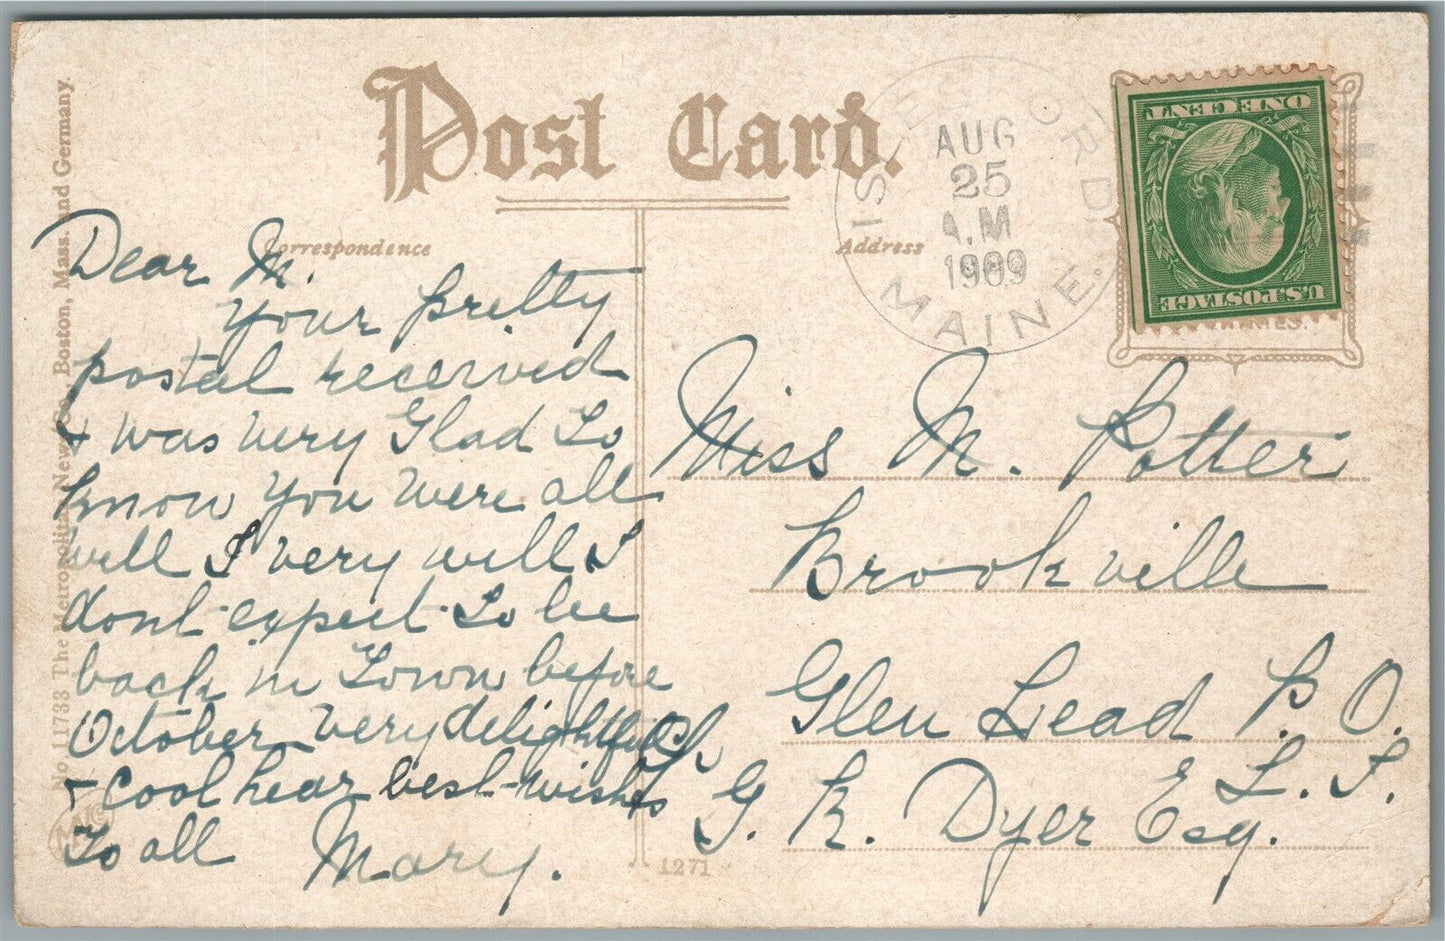 Post Card.
Correspondence
Address
AUG
25
A.M
1909
MAINE.
ONE CENT
U.S. POSTAGE
No. 11733 The Metropolitan News Co., Boston, Mass. and Germany.
Dear M.
Your pretty
postal received
& was very Glad to
know you were all
well I very well I
dont expect to be
back in Town before
October very delightful
& cool hear best wishes
to all Mary.
Miss M. Potter
Brookville
Glen Lead P. O.
L. I.
G. R. Dyer Esq.
1271